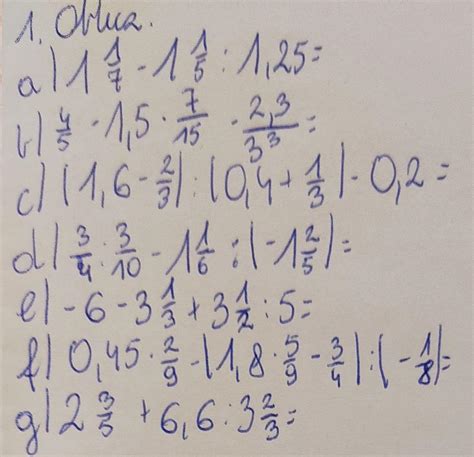 1. Oblicz.
a) 1 1/7 - 1 1/5 : 1,25 =
b) 4/5 - 1,5 · 7/15 - 2,3/3³ =
c) (1,6 - 2/3) : (0,4 + 1/3) - 0,2 =
d) 3/4 : 3/10 - 1 1/6 : (-1 2/5) =
e) -6 - 3 1/3 + 3 1/2 : 5 =
f) 0,45 · 2/9 - (1,8 · 5/9 - 3/4) : (-1/8) =
g) 2 3/5 + 6,6 : 3 2/3 =